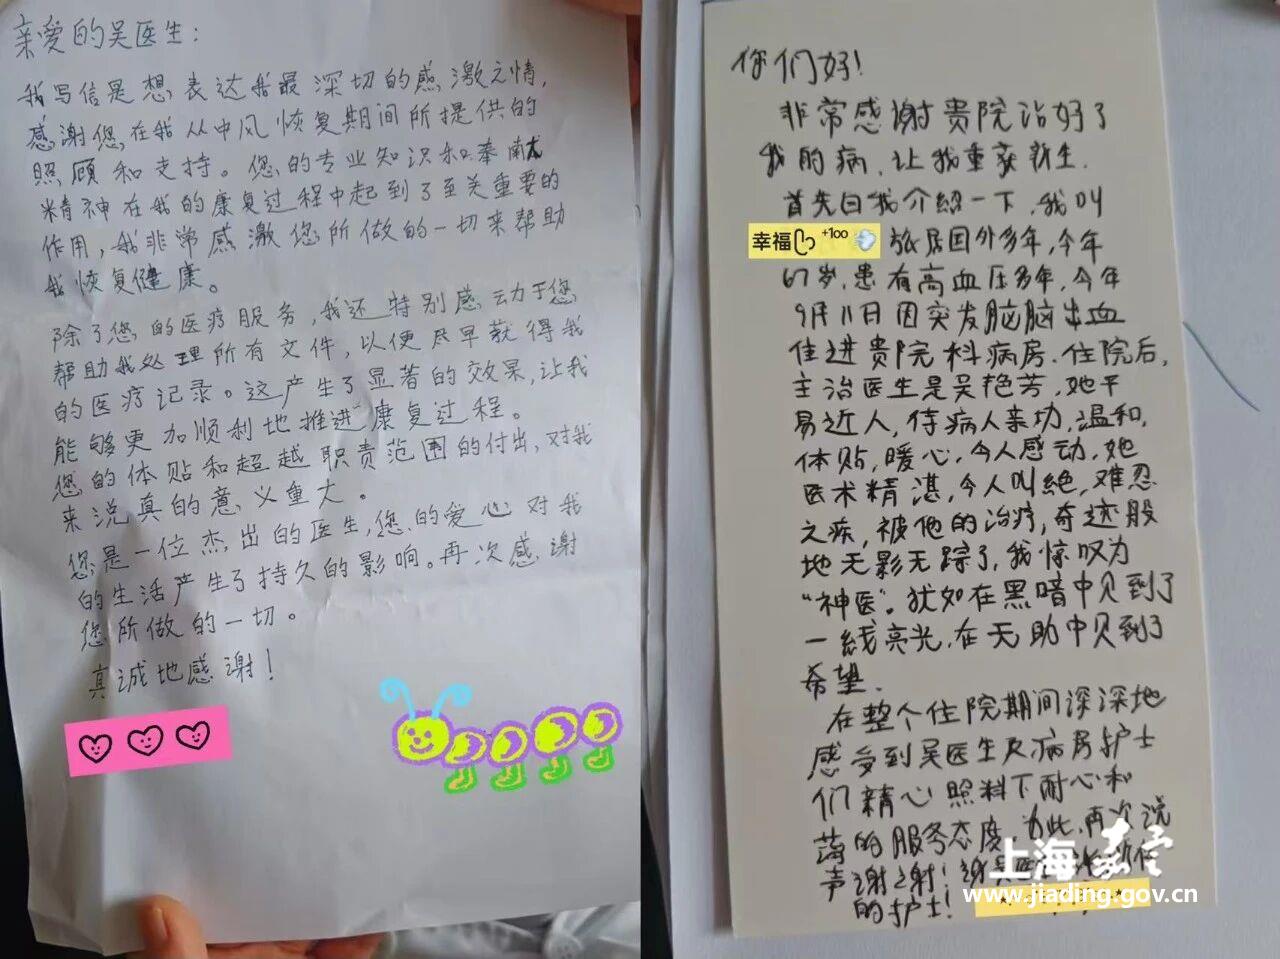 亲爱的吴医生:
我写信是想表达我最深切的感激之情,
感谢您在我从中风恢复期间所提供的
照顾和支持。您的专业知识和奉献
精神在我的康复过程中起到了至关重要的
作用,我非常感激您所做的一切来帮助
我恢复健康。
除了您的医疗服务,我还特别感动于您
帮助我处理所有文件,以便尽早获得我
的医疗记录。这产生了显著的效果,让我
能够更加顺利地推进康复过程。
您的体贴和超越职责范围的付出,对我
来说真的意义重大。
您是一位杰出的医生,您的爱心对我
的生活产生了持久的影响。再次感谢
您所做的一切。
真诚地感谢!
你们好!
非常感谢贵院治好了
我的病,让我重获新生.
首先自我介绍一下,我叫
幸福 +100 旅居国外多年,今年
67岁,患有高血压多年,今年
9月11日因突发脑脑出血
住进贵院科病房.住院后,
主治医生是吴艳芳,她平
易近人,待病人亲切,温和,
体贴,暖心,令人感动,她
医术精湛,令人叫绝,难忍
之疾,被他的治疗,奇迹般
地无影无踪了,我惊叹为
“神医”.犹如在黑暗中见到了
一线亮光,在无助中见到了
希望.
在整个住院期间深深地
感受到吴医生及病房护士
们精心照料下耐心和
蔼的服务态度,为此,再次说
声谢谢!谢吴医
的护士!
上海嘉定
www.jiading.gov.cn